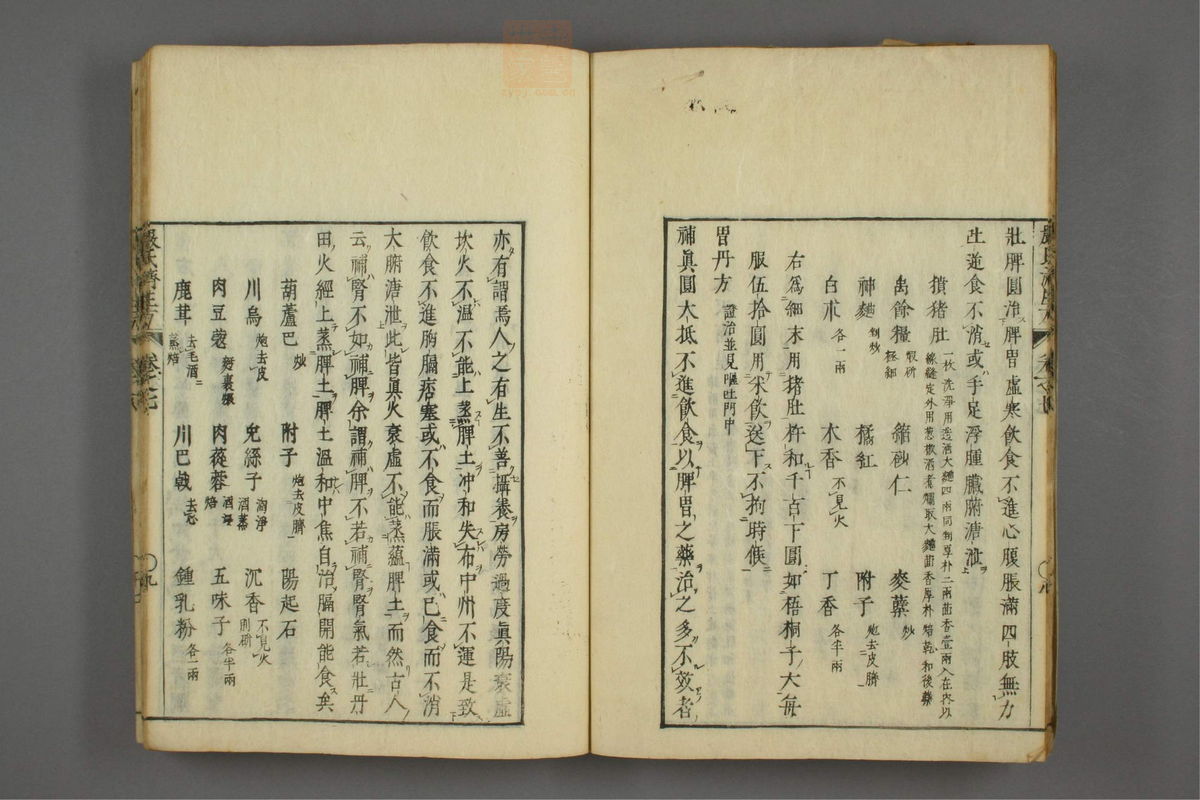 壯脾圓治脾胃虛寒飲食不進心腹脹滿四肢無力
吐逆食不消或手足浮腫臟腑溏泄
獖猪肚 一枚洗淨用造酒大麯四兩同剉厚朴二兩茴香壹兩入在內以
線縫定外用葱椒酒煮爛取大麯茴香厚朴焙乾和後藥
禹餘糧 煅研極細 縮砂仁 麥糵 炒
神麯 剉炒 橘紅 附子 炮去皮臍
白朮 各一兩 木香 不見火 丁香 各半兩
右爲細末用猪肚杵和千百下圓如梧桐子大每
服伍拾圓用米飲送下不拘時候
胃丹方 證治並見嘔吐門中
補眞圓大抵不進飲食以脾胃之藥治之多不效者
亦有謂焉人之有生不善攝養房勞過度眞陽衰虛
坎火不溫不能上蒸脾土冲和失布中州不運是致
飲食不進胸膈痞塞或不食而脹滿或已食而不消
大腑溏泄此皆眞火衰虛不能蒸蘊脾土而然古人
云補腎不如補脾余謂補脾不若補腎腎氣若壯丹
田火經上蒸脾土脾土溫和中焦自治膈開能食矣
葫蘆巴 炒 附子 炮去皮臍 陽起石
川烏 炮去皮 兔絲子 淘淨酒蒸 沉香 不見火別研
肉豆蔲 麪裹煨 肉蓯蓉 酒浸焙 五味子 各半兩
鹿茸 去毛酒蒸焙 川巴戟 去心 鍾乳粉 各一兩
嚴氏濟生方 卷之七